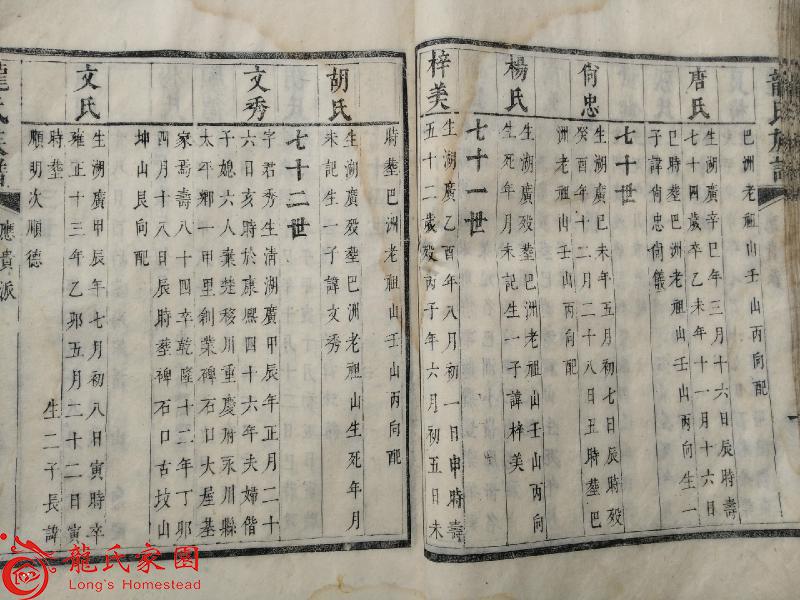 龍氏族譜
巴洲老祖山壬山丙向配
唐氏
生湖廣辛巳年三月十六日辰時壽
七十四歲卒乙未年十一月十六日
巳時葬巴洲老祖山壬山丙向生一
子諱尙忠尙儀
七十世
尙忠
生湖廣己未年五月初七日辰時歿
癸酉年十二月二十八日丑時葬巴
洲老祖山壬山丙向配
楊氏
生湖廣歿葬巴洲老祖山壬山丙向
生死年月未記生一子諱梓美
七十一世
梓美
生湖廣乙酉年八月初一日申時壽
五十二歲歿丙子年六月初五日未
時葬巴洲老祖山壬山丙向配
胡氏
生湖廣歿葬巴洲老祖山生死年月
未記生一子諱文秀
七十二世
文秀
字君秀生清湖廣甲辰年正月二十
六日亥時於康熙四十六年夫婦偕
子媳六人業楚移川重慶府永川縣
太平鄉一甲里創業碑石口大屋基
家焉壽八十四卒乾隆十二年丁卯
四月十八日辰時葬碑石口古坟山
坤山艮向配
文氏
生湖廣甲辰年七月初八日寅時卒
雍正十三年乙卯五月二十二日寅
時葬 生二子長諱
順明次順德
龍氏族譜
應貴派
龍氏家園
Long's Homestead